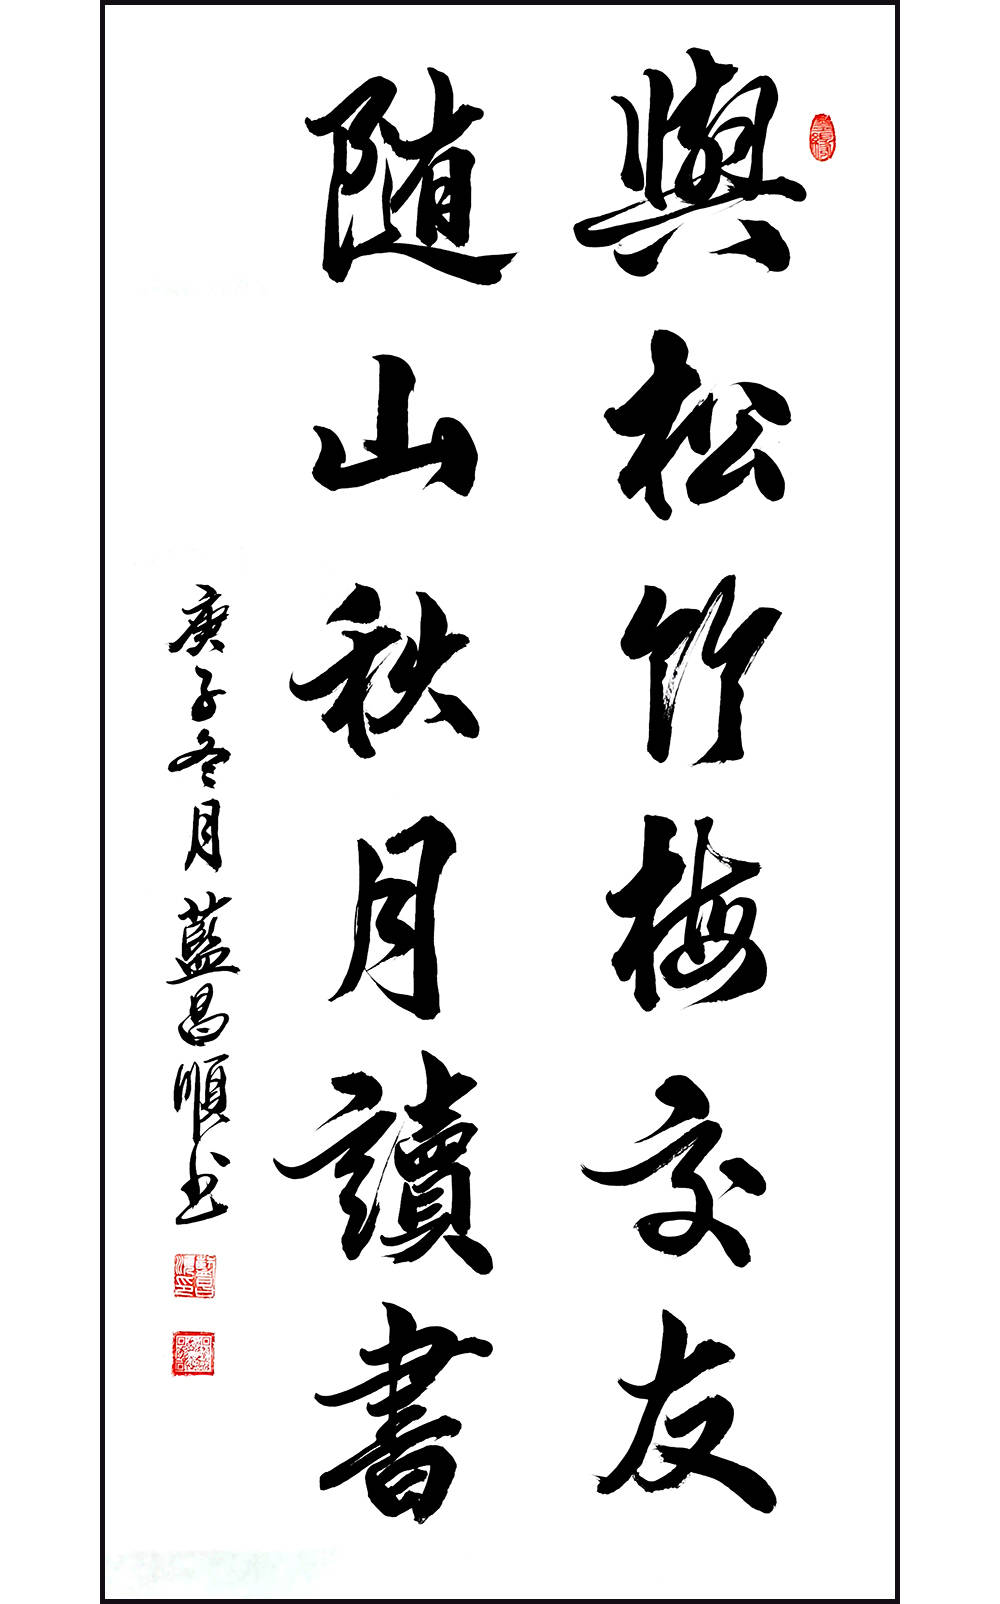 與松竹梅交友
随山秋月讀書
庚子冬月藍昌順书